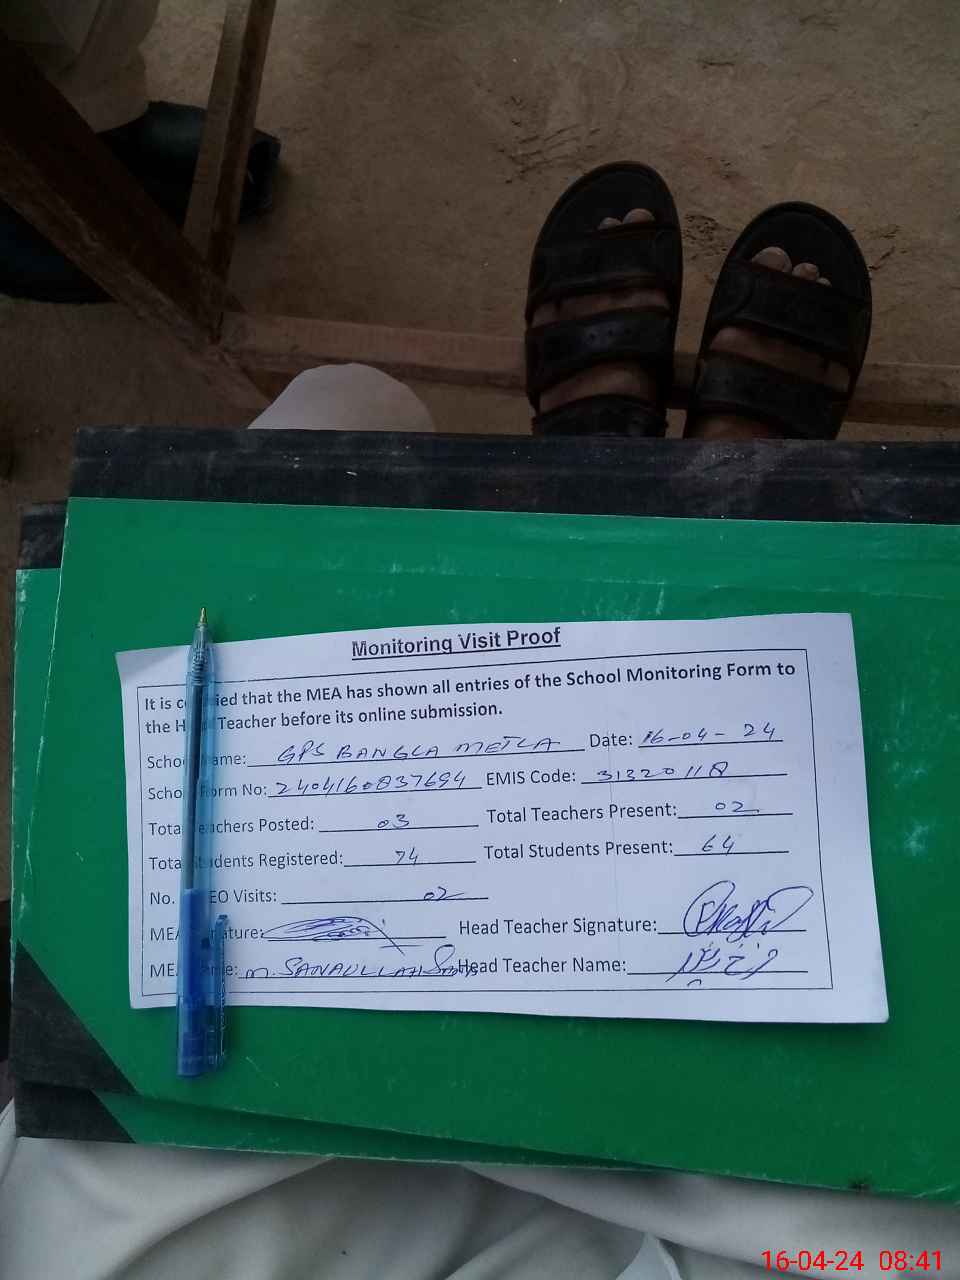 Monitoring Visit Proof
It is ied that the MEA has shown all entries of the School Monitoring Form to
the H Teacher before its online submission.
Schoo ame: GPS BANGLA METLA Date: 16-04-24
Schoo orm No: 2404160837694 EMIS Code: 31320118
Tota eachers Posted: 03 Total Teachers Present: 02
Tota udents Registered: 74 Total Students Present: 64
No. EO Visits: 02
MEA nature: Head Teacher Signature:
MEA me: M. SANAULLAH Head Teacher Name:
16-04-24 08:41